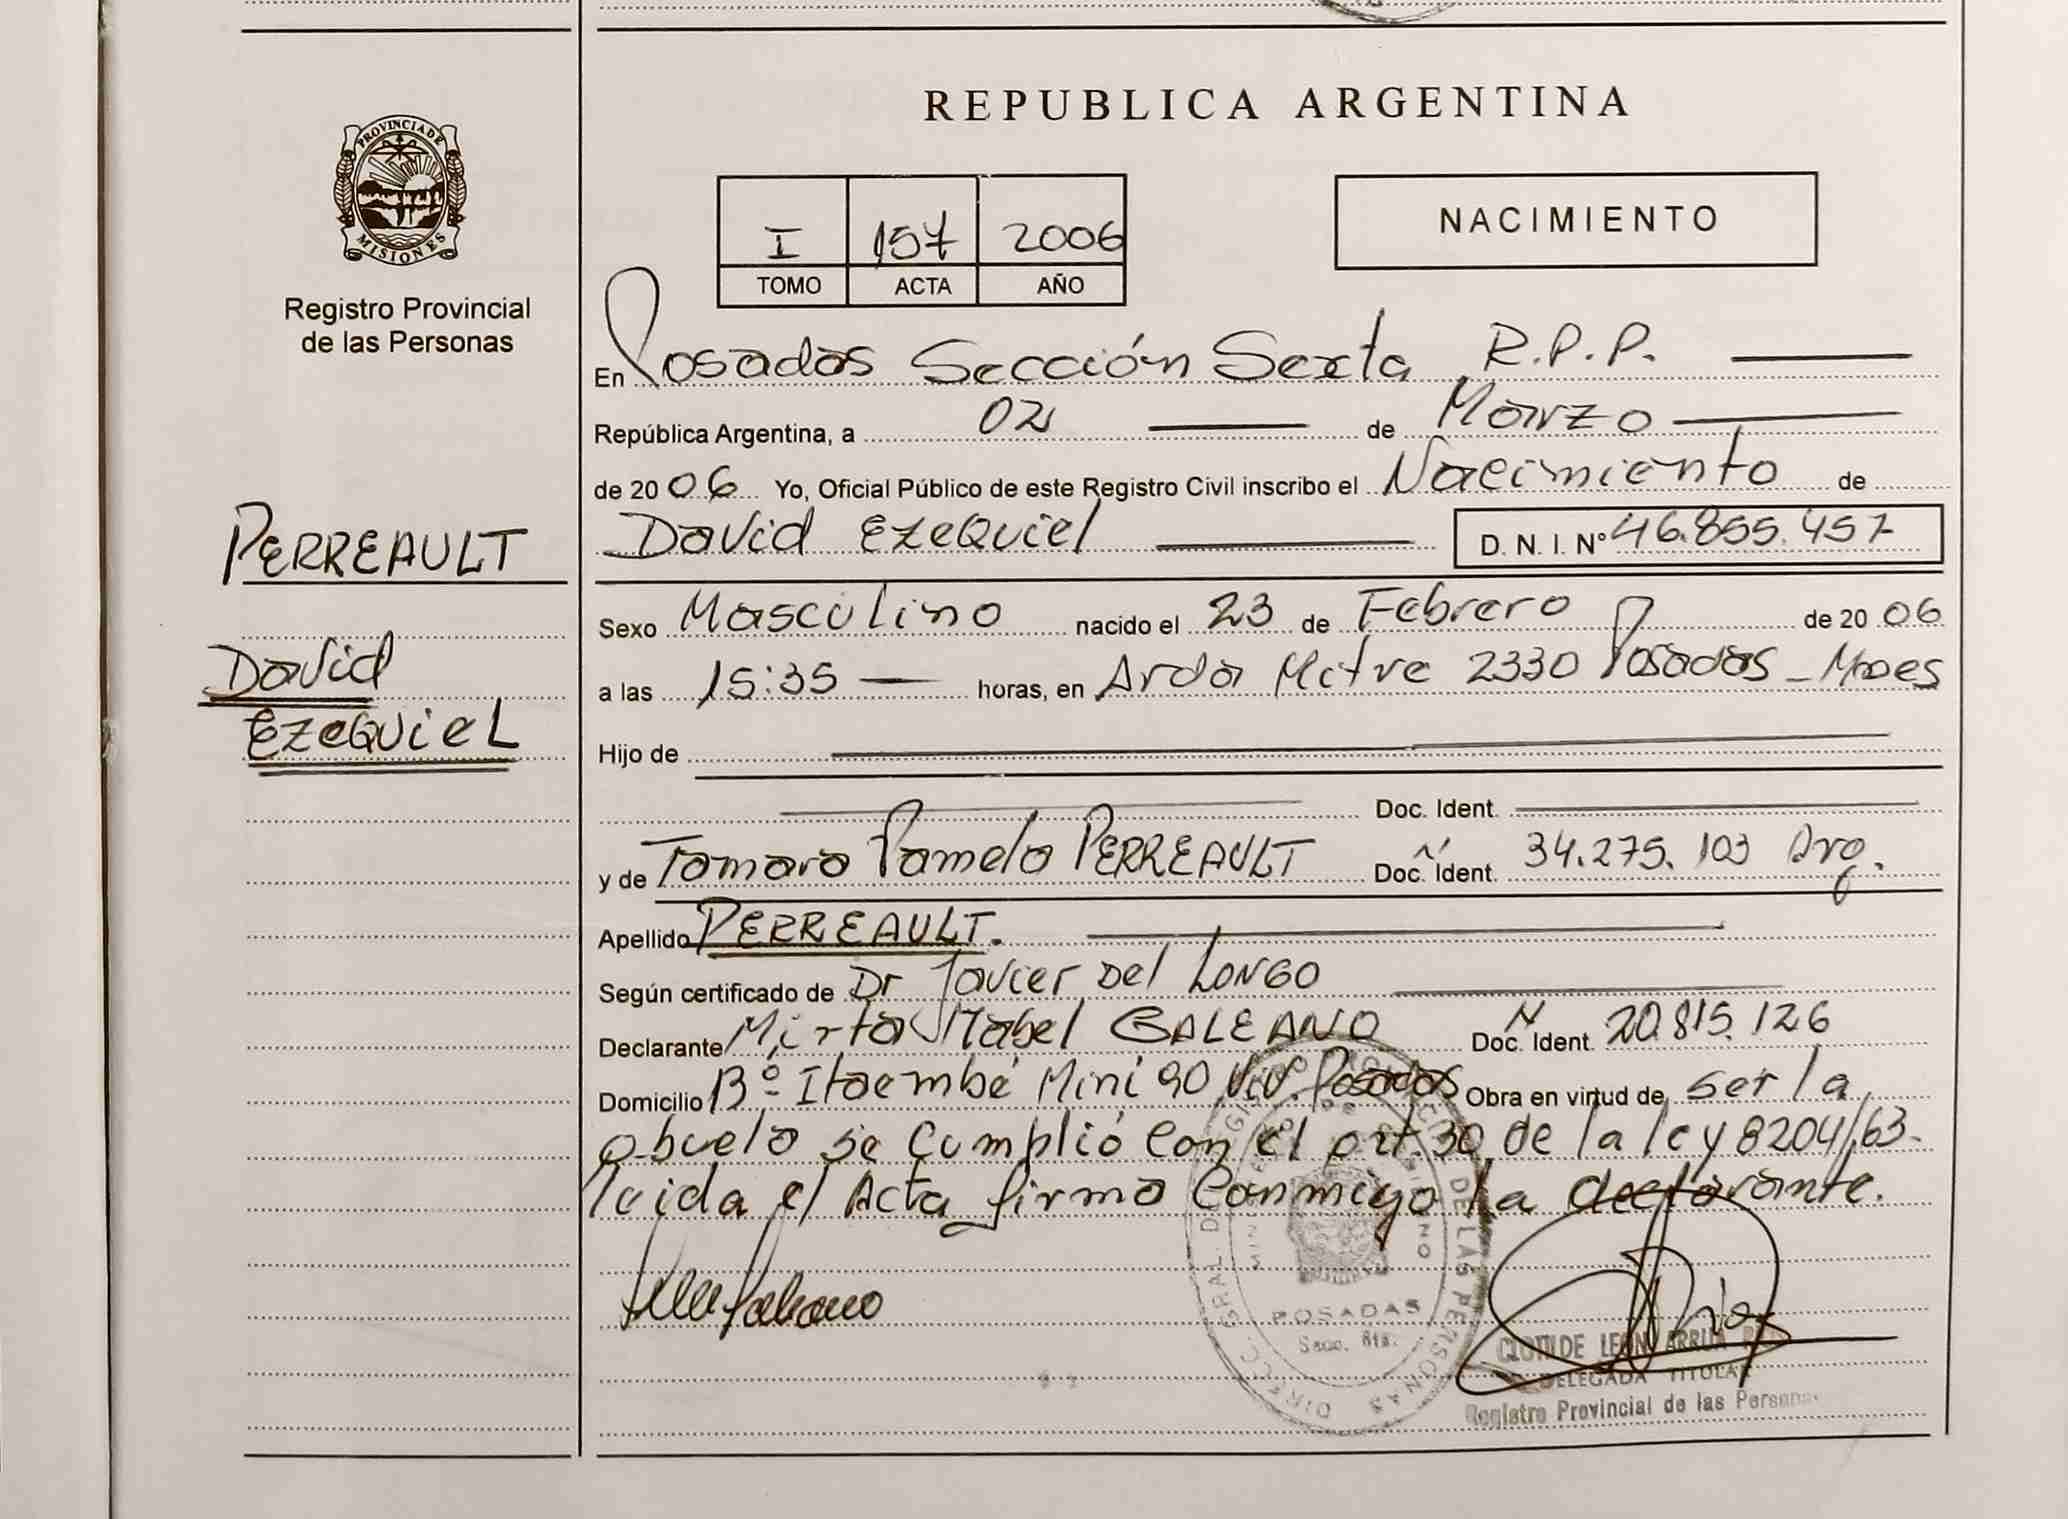 PROVINCIA DE
MISIONES
Registro Provincial
de las Personas
PERREAULT
David
EzeQuieL
REPUBLICA ARGENTINA
I 157 2006
TOMO ACTA AÑO
NACIMIENTO
En Posadas Sección Sexta R.P.P.
República Argentina, a 02 de Marzo
de 20 06 Yo, Oficial Público de este Registro Civil inscribo el Nacimiento de
David EzeQuiel D. N. I. Nº 46.855.457
Sexo Masculino nacido el 23 de Febrero de 20 06
a las 15:35 horas, en Avda Mitre 2330 Posadas - Mnes
Hijo de
Doc. Ident.
y de Tamara Pamela PERREAULT Doc. Ident. 34.275.103 Arg.
Apellido PERREAULT.
Según certificado de Dr Javier Del LONGO
Declarante Mirta Mabel GALEANO Doc. Ident. 20.815.126
Domicilio Bº Itaembé Mini 90 Viv. Posadas Obra en virtud de ser la
abuela se cumplió con el art. 30 de la ley 8204/63-
leida el Acta firma conmigo la declarante.
DIRECC. GRAL. DEL REGISTRO DE LAS PERSONAS
POSADAS
Secc. 6ta.
DELEGADA TITULAR
Registro Provincial de las Personas